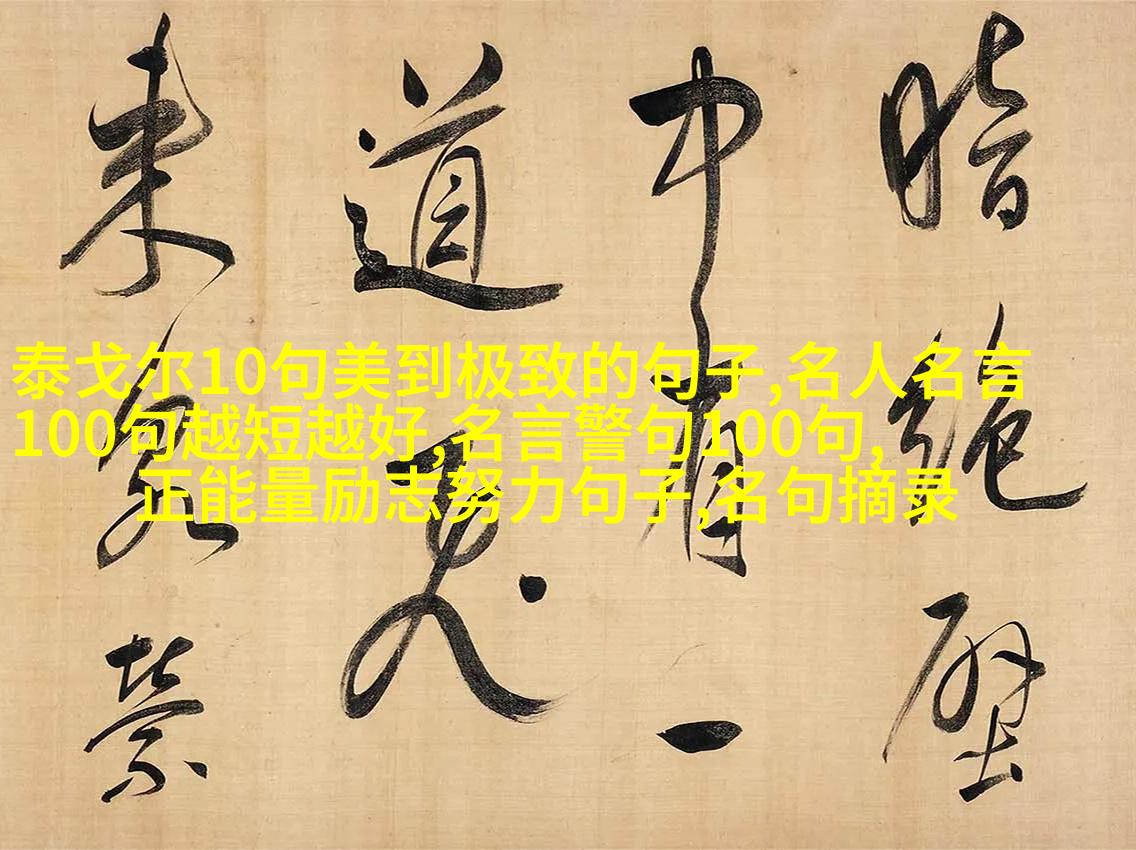 泰戈尔10句美到极致的句子,名人名言
100句越短越好,名言警句100句,
正能量励志努力句子,名句摘录
暗絶
中有一
道飛
来泉縈